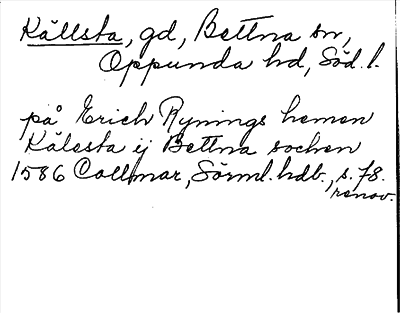 Källsta, gd, Bettna sn,
Oppunda hd, Söd. l.
på Erich Rynings hemen
Kälesta ij Bettna sochen
1586 Collmar, Sörml. hdb., s. 78.
renov.